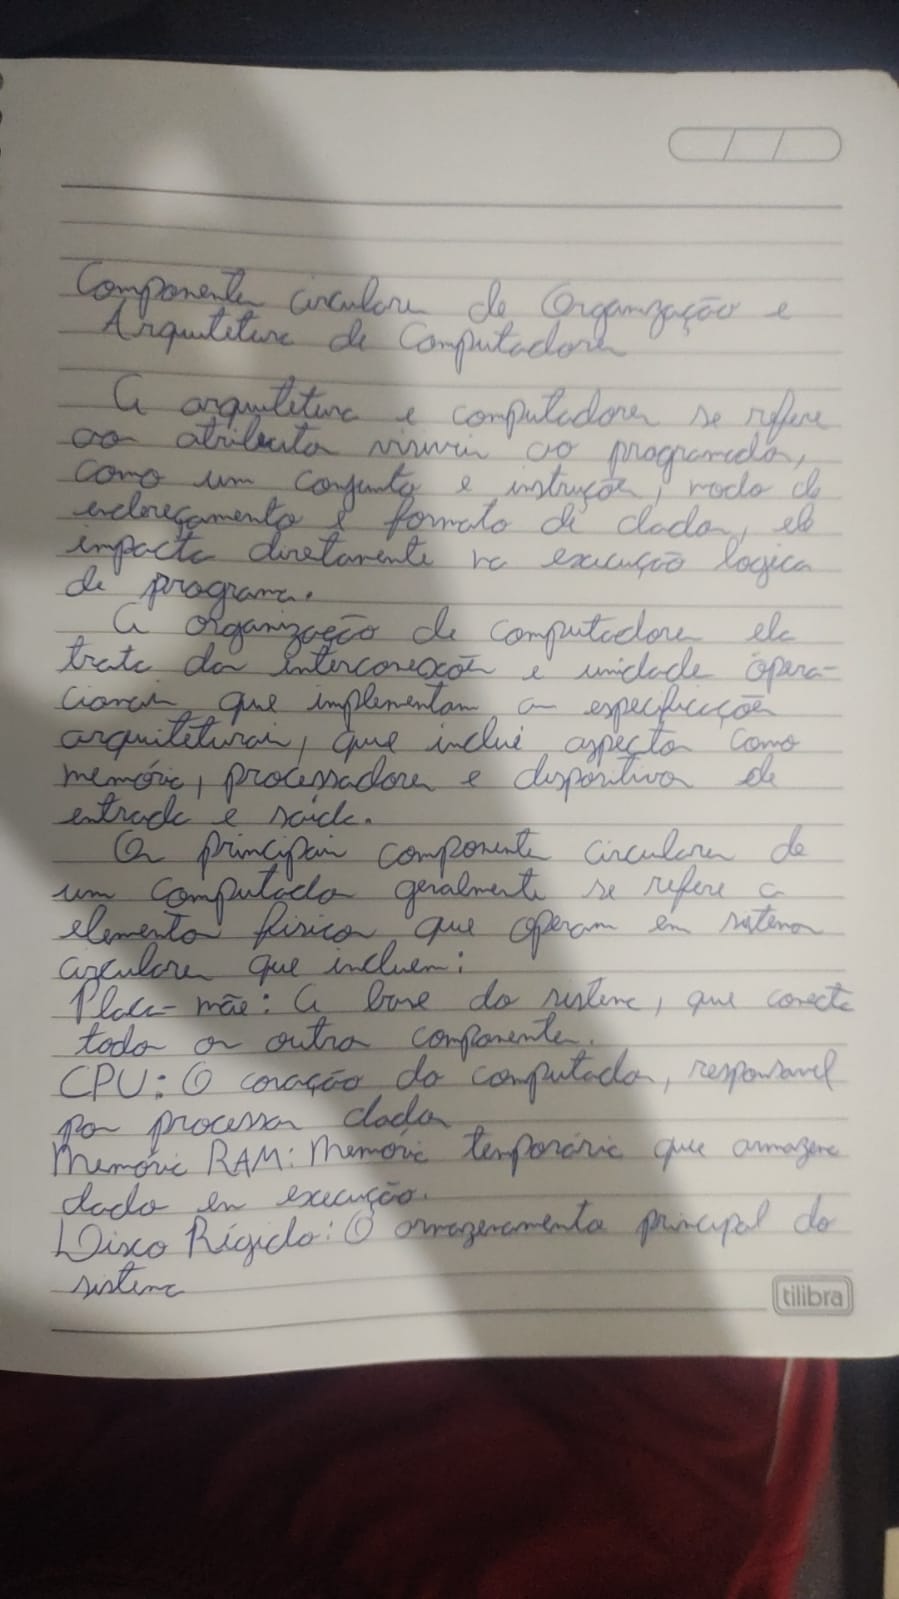 Componentes circulares de Organização e
Arquitetura de Computadores
A arquitetura e computadores se refere
ao atributos visiveis ao programador,
como um conjunto e instruções, modo de
endereçamento e formato de dados, ela
impacta diretamente na execução logica
de programa.
A organização de computadores ela
trata das interconexões e unidade opera-
cionais que implementam as especificações
arquiteturais, que inclui aspectos como
memória, processadores e dispositivos de
entrada e saída.
Os principais componentes circulares de
um computador geralmente se refere a
elementos físicos que operam em sistemas
circulares que incluem:
Placa-mãe: A base do sistema, que conecta
todos os outros componentes.
CPU: O coração do computador, responsavel
por processar dados
Memória RAM: Memória temporária que armazena
dados em execução.
Disco Rígido: O armazenamento principal do
sistema
tilibra